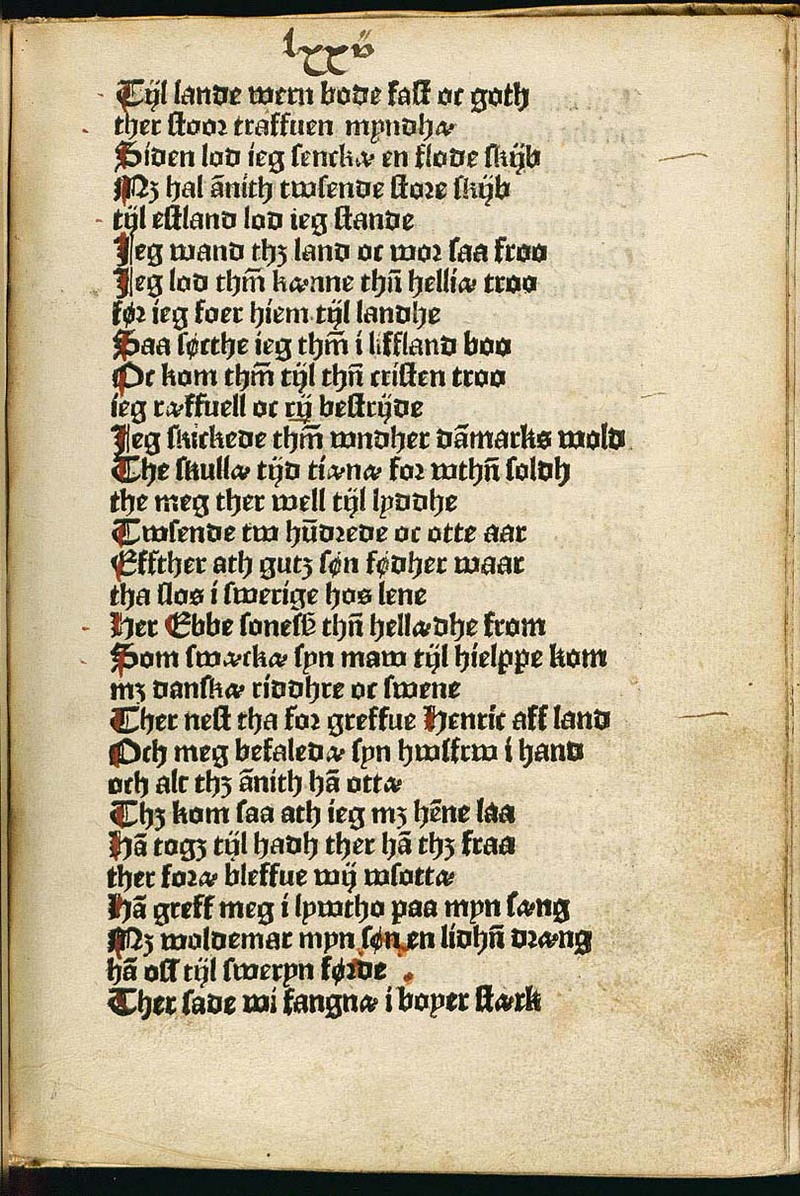 lxxv
Tijl lande wern bode fast oc goth
ther stoor traffuen myndhæ
Siden lod ieg senckæ en flode skijb
Mꝫ hal ānith twsende store skijb
tijl estland lod ieg stande
Jeg wand thꝫ land oc wor saa froo
Jeg lod thm̄ kænne thn̄ helliæ troo
før ieg foer hiem tijl landhe
Saa søcthe ieg thm̄ i liffland boo
Oc kom thm̄ tijl thn̄ cristen troo
ieg ræffuell oc rij bestrijde
Jeg skickede thm̄ wndher dāmarks wold
The skullæ tijd tiænæ for wthn̄ soldh
the meg ther well tijl lyddhe
Twsende tw hūdrede oc otte aar
Effther ath gutꝫ søn fødher waar
tha slos i swerige hos lene
Her Ebbe sonesē thn̄ hellædhe from
Som swæckæ syn maw tijl hielppe kom
mꝫ danskæ riddhre oc swene
Ther nest tha for greffue Henric aff land
Och meg befaledæ syn hwsfrw i hand
och alt thꝫ ānith hā ottæ
Thꝫ kom saa ath ieg mꝫ hēne laa
Hā togꝫ tijl hadh ther hā thꝫ fraa
ther foræ bleffue wij wsottæ
Hā greff meg i lywtho paa myn sæng
Mꝫ woldemar myn søn en lidhn̄ dræng
hā oss tijl sweryn førde
Ther sade wi fangnæ i boyer stærk